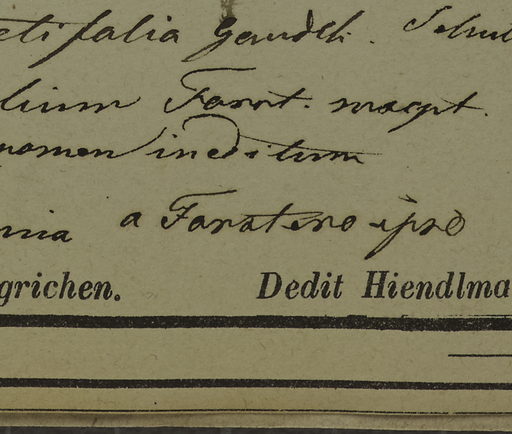 folia Gaudich. Schul
lium Forst. mscpt.
nomen ineditum
nia a Forstero ipso
grichen. Dedit Hiendlma